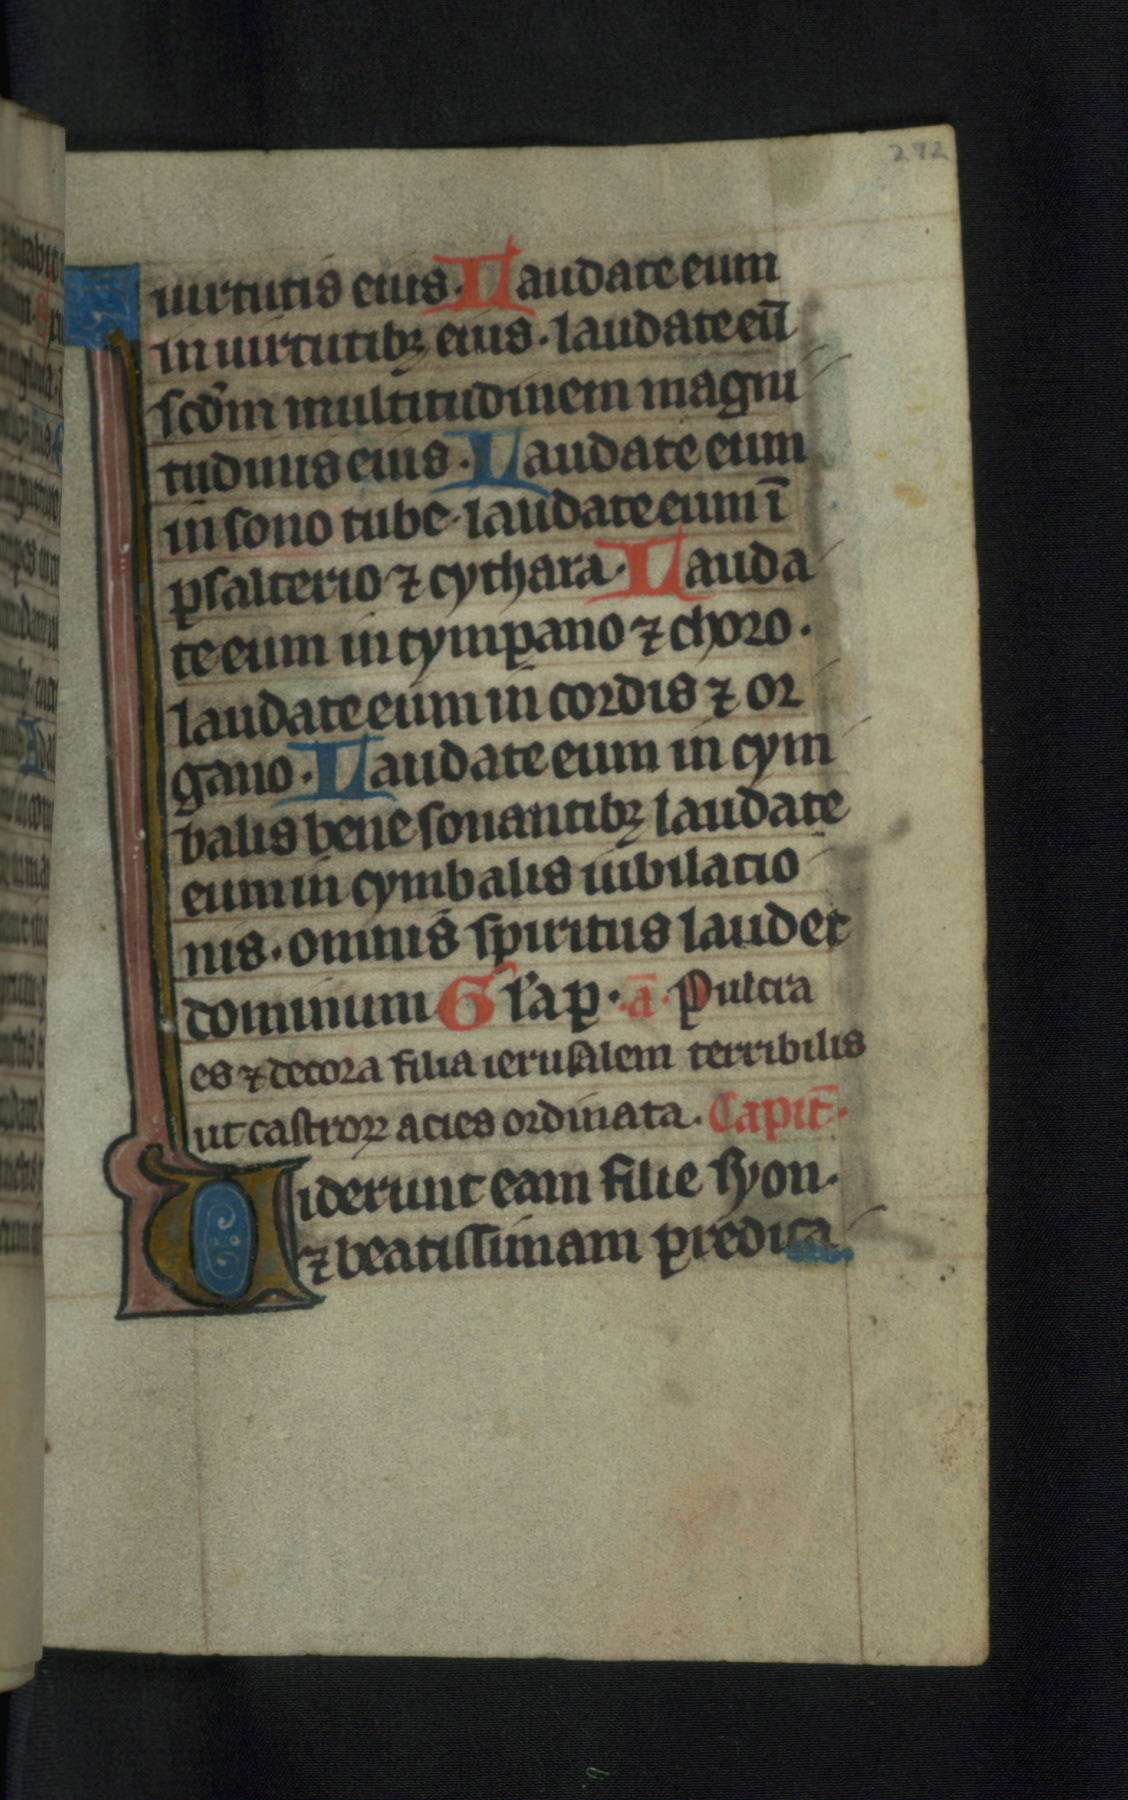 292
uirtutis eius. Laudate eum
in uirtutibꝫ eius. laudate eū
scd̄m multitudinem magni
tudinis eius. Laudate eum
in sono tube. laudate eum ī
psalterio ⁊ cythara. Lauda
te eum in tympano ⁊ choro.
laudate eum in cordis ⁊ or
gano. Laudate eum in cym
balis bene sonantibꝫ laudate
eum in cymbalis iubilatio
nis. omnis spiritus laudet
dominum Gl'a p. a̅. Pulcra
es ⁊ decora filia ierusalem terribilis
ut castroꝝ acies ordinata. Capit̄.
Uiderunt eam filie syon.
⁊ beatissimam predica